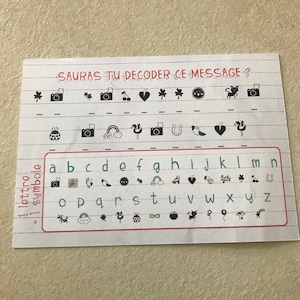 SAURAS TU DECODER CE MESSAGE ?
1 lettre
= 1 symbole
a b c d e f g h i j k l m n
o p q r s t u v w x y z